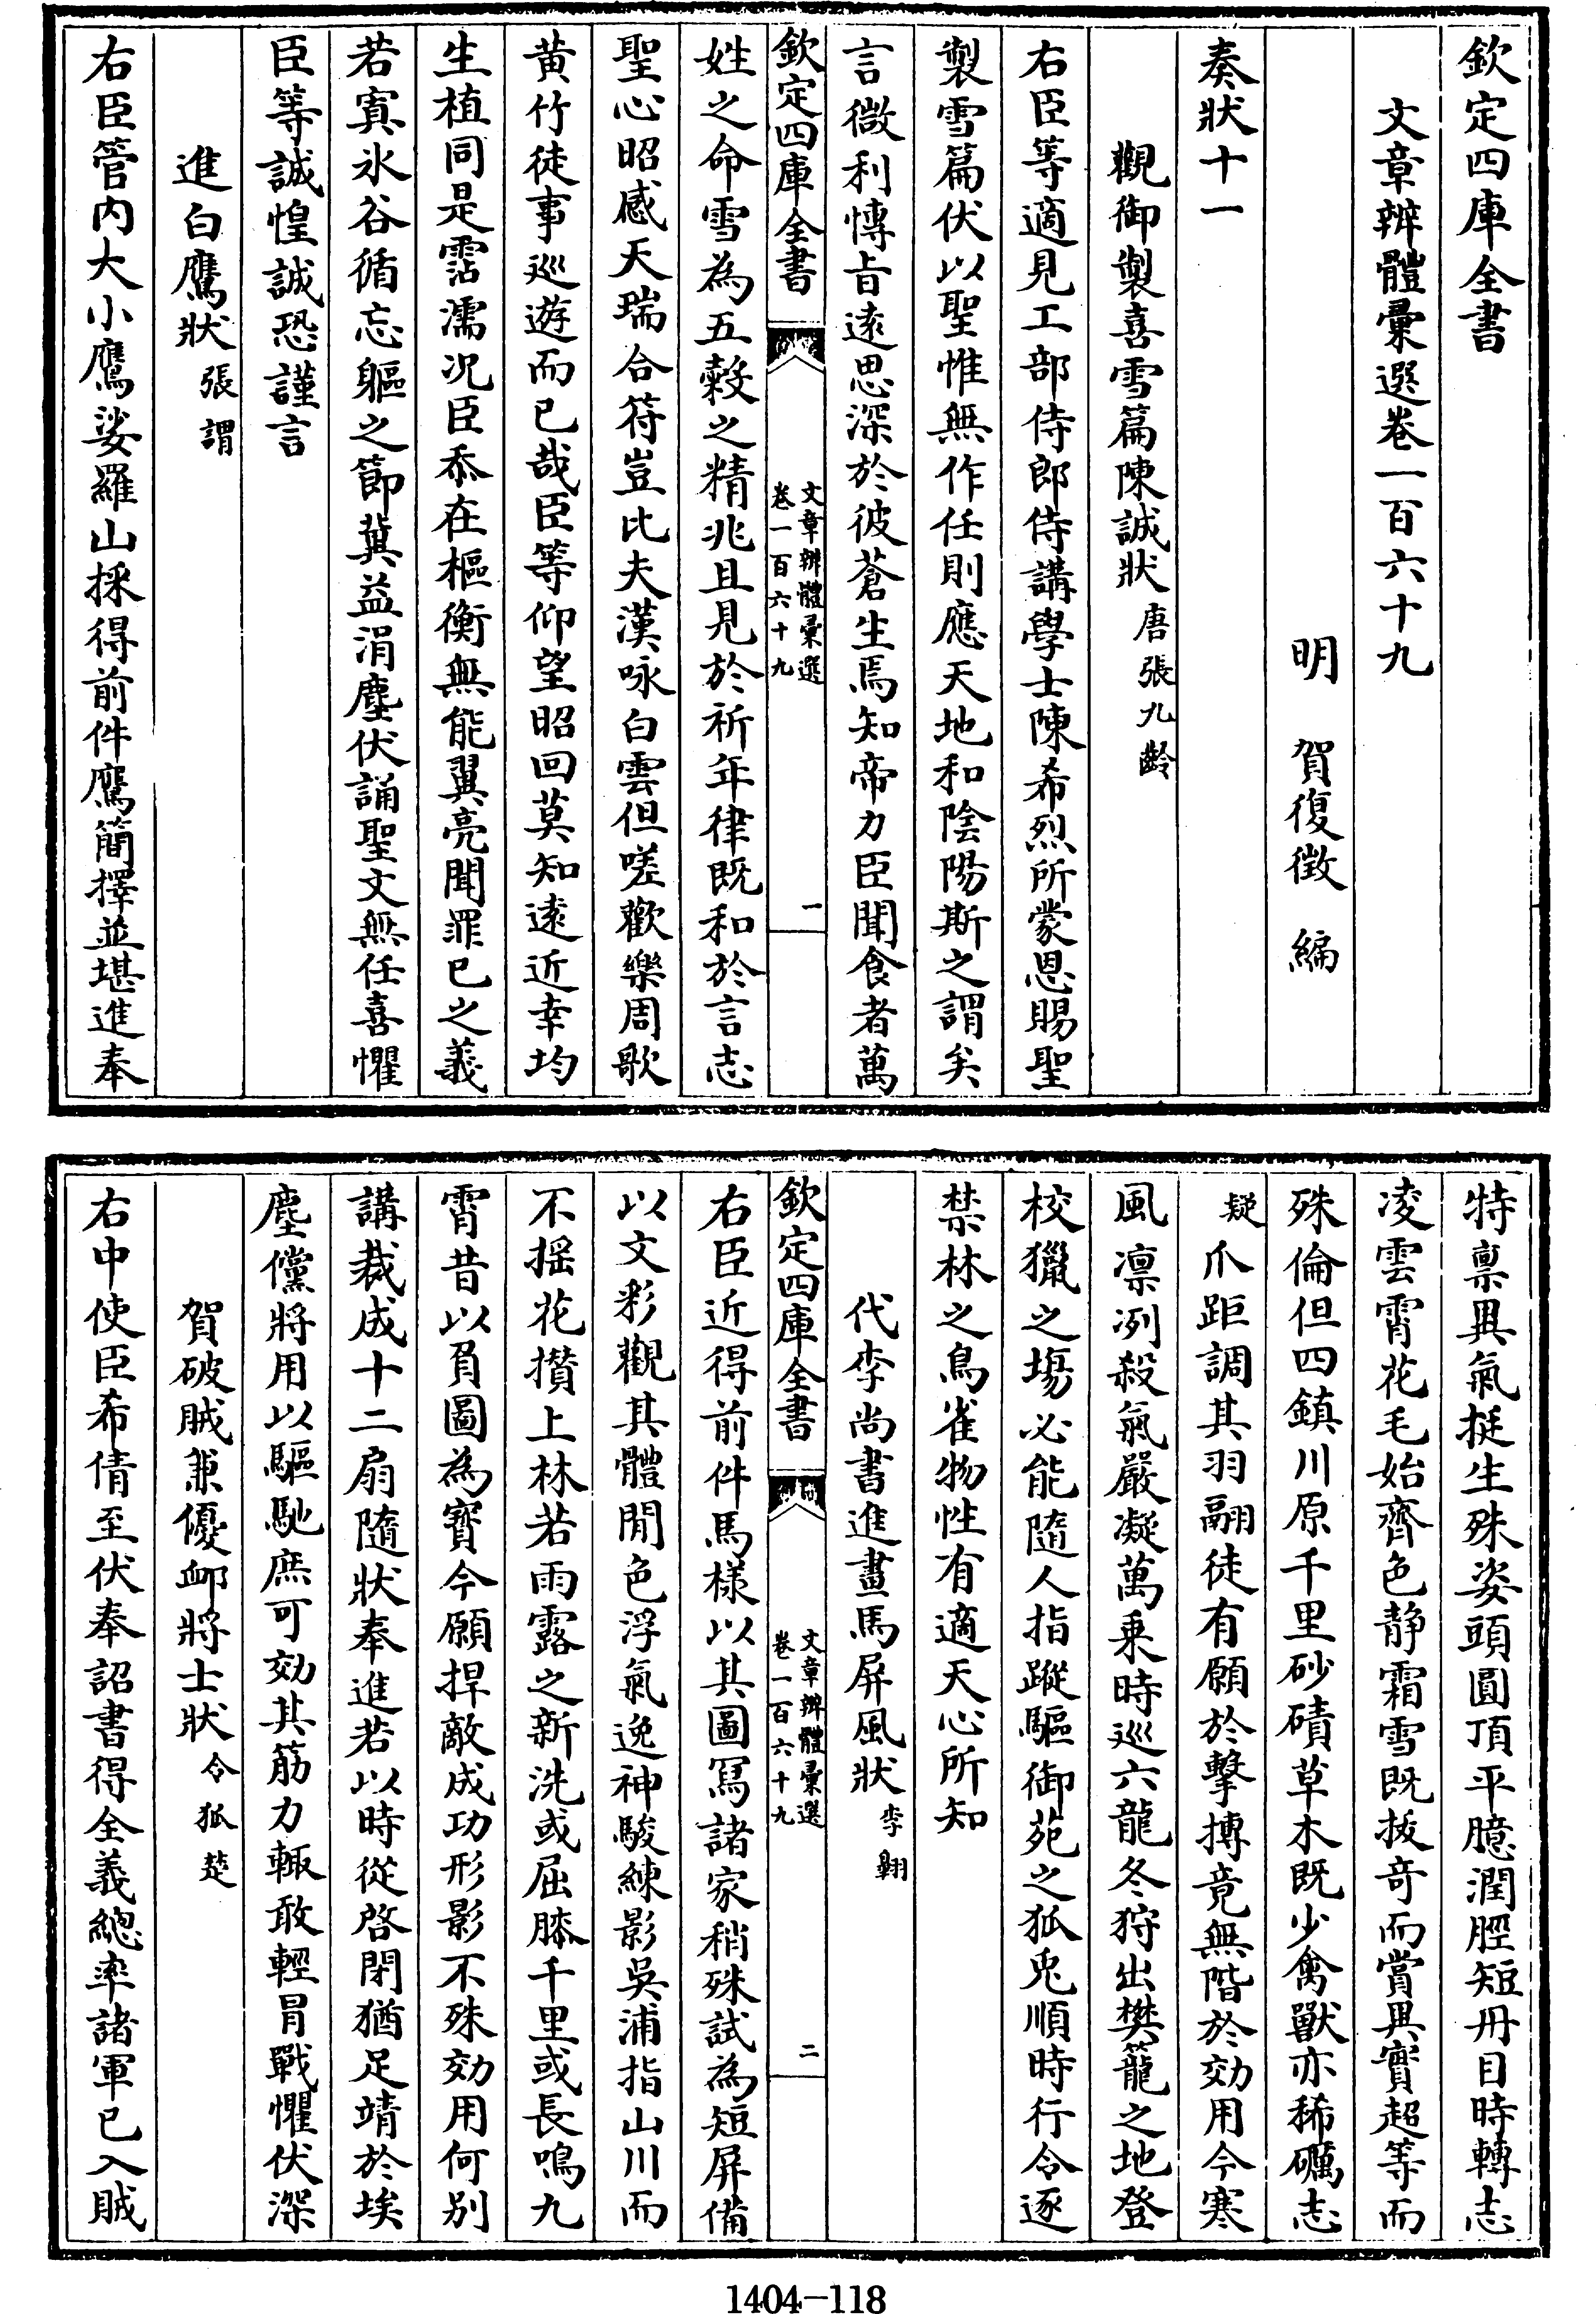 欽定四庫全書
文章辨體彚選卷一百六十九
明　賀復徴　編
奏狀十一
觀御製喜雪篇陳誠狀唐張九齡
右臣等適見工部侍郎侍講學士陳希烈所蒙恩賜聖
製雪篇伏以聖惟無作任則應天地和陰陽斯之謂矣
言微利愽旨逺思深於彼蒼生焉知帝力臣聞食者萬
欽定四庫全書
文章辨體彚選
卷一百六十九
一
姓之命雪為五穀之精兆且見於祈年律既和於言志
聖心昭感天瑞合符豈比夫漢咏白雲但嗟歡樂周歌
黄竹徒事巡遊而已哉臣等仰望昭回莫知逺近幸均
生植同是霑濡况臣忝在樞衡無能翼亮聞罪已之義
若寘氷谷循忘軀之節冀益涓塵伏誦聖文無任喜懼
臣等誠惶誠恐謹言
進白鷹狀張謂
右臣管内大小鷹娑羅山採得前件鷹簡擇並堪進奉
特禀異氣挺生殊姿頭圓頂平臆潤脛短丹目時轉志
凌雲霄花毛始齊色静霜雪既拔奇而賞異實超等而
殊倫但四鎮川原千里砂磧草木既少禽獸亦稀礪志
疑爪距調其羽翮徒有願於擊摶竟無階於効用今寒
風凛冽殺氣嚴凝萬乗時巡六龍冬狩出樊籠之地登
校獵之塲必能隨人指蹤驅御苑之狐兎順時行令逐
禁林之鳥雀物性有適天心所知
代李尚書進畫馬屏風狀李翺
欽定四庫全書
文章辨體彚選
卷一百六十九
二
右臣近得前件馬様以其圖冩諸家稍殊試為短屏備
以文彩觀其體閒色浮氣逸神駿練影吳浦指山川而
不揺花攅上林若雨露之新洗或屈膝千里或長鳴九
霄昔以負圖為寳今願捍敵成功形影不殊効用何别
講裁成十二扇隨狀奉進若以時從啓閉猶足靖於埃
塵儻將用以驅馳庶可効其筋力輙敢輕冐戰懼伏深
賀破賊兼優䘏將士狀令狐楚
右中使臣希倩至伏奉詔書得全義總率諸軍已入賊
1404-118